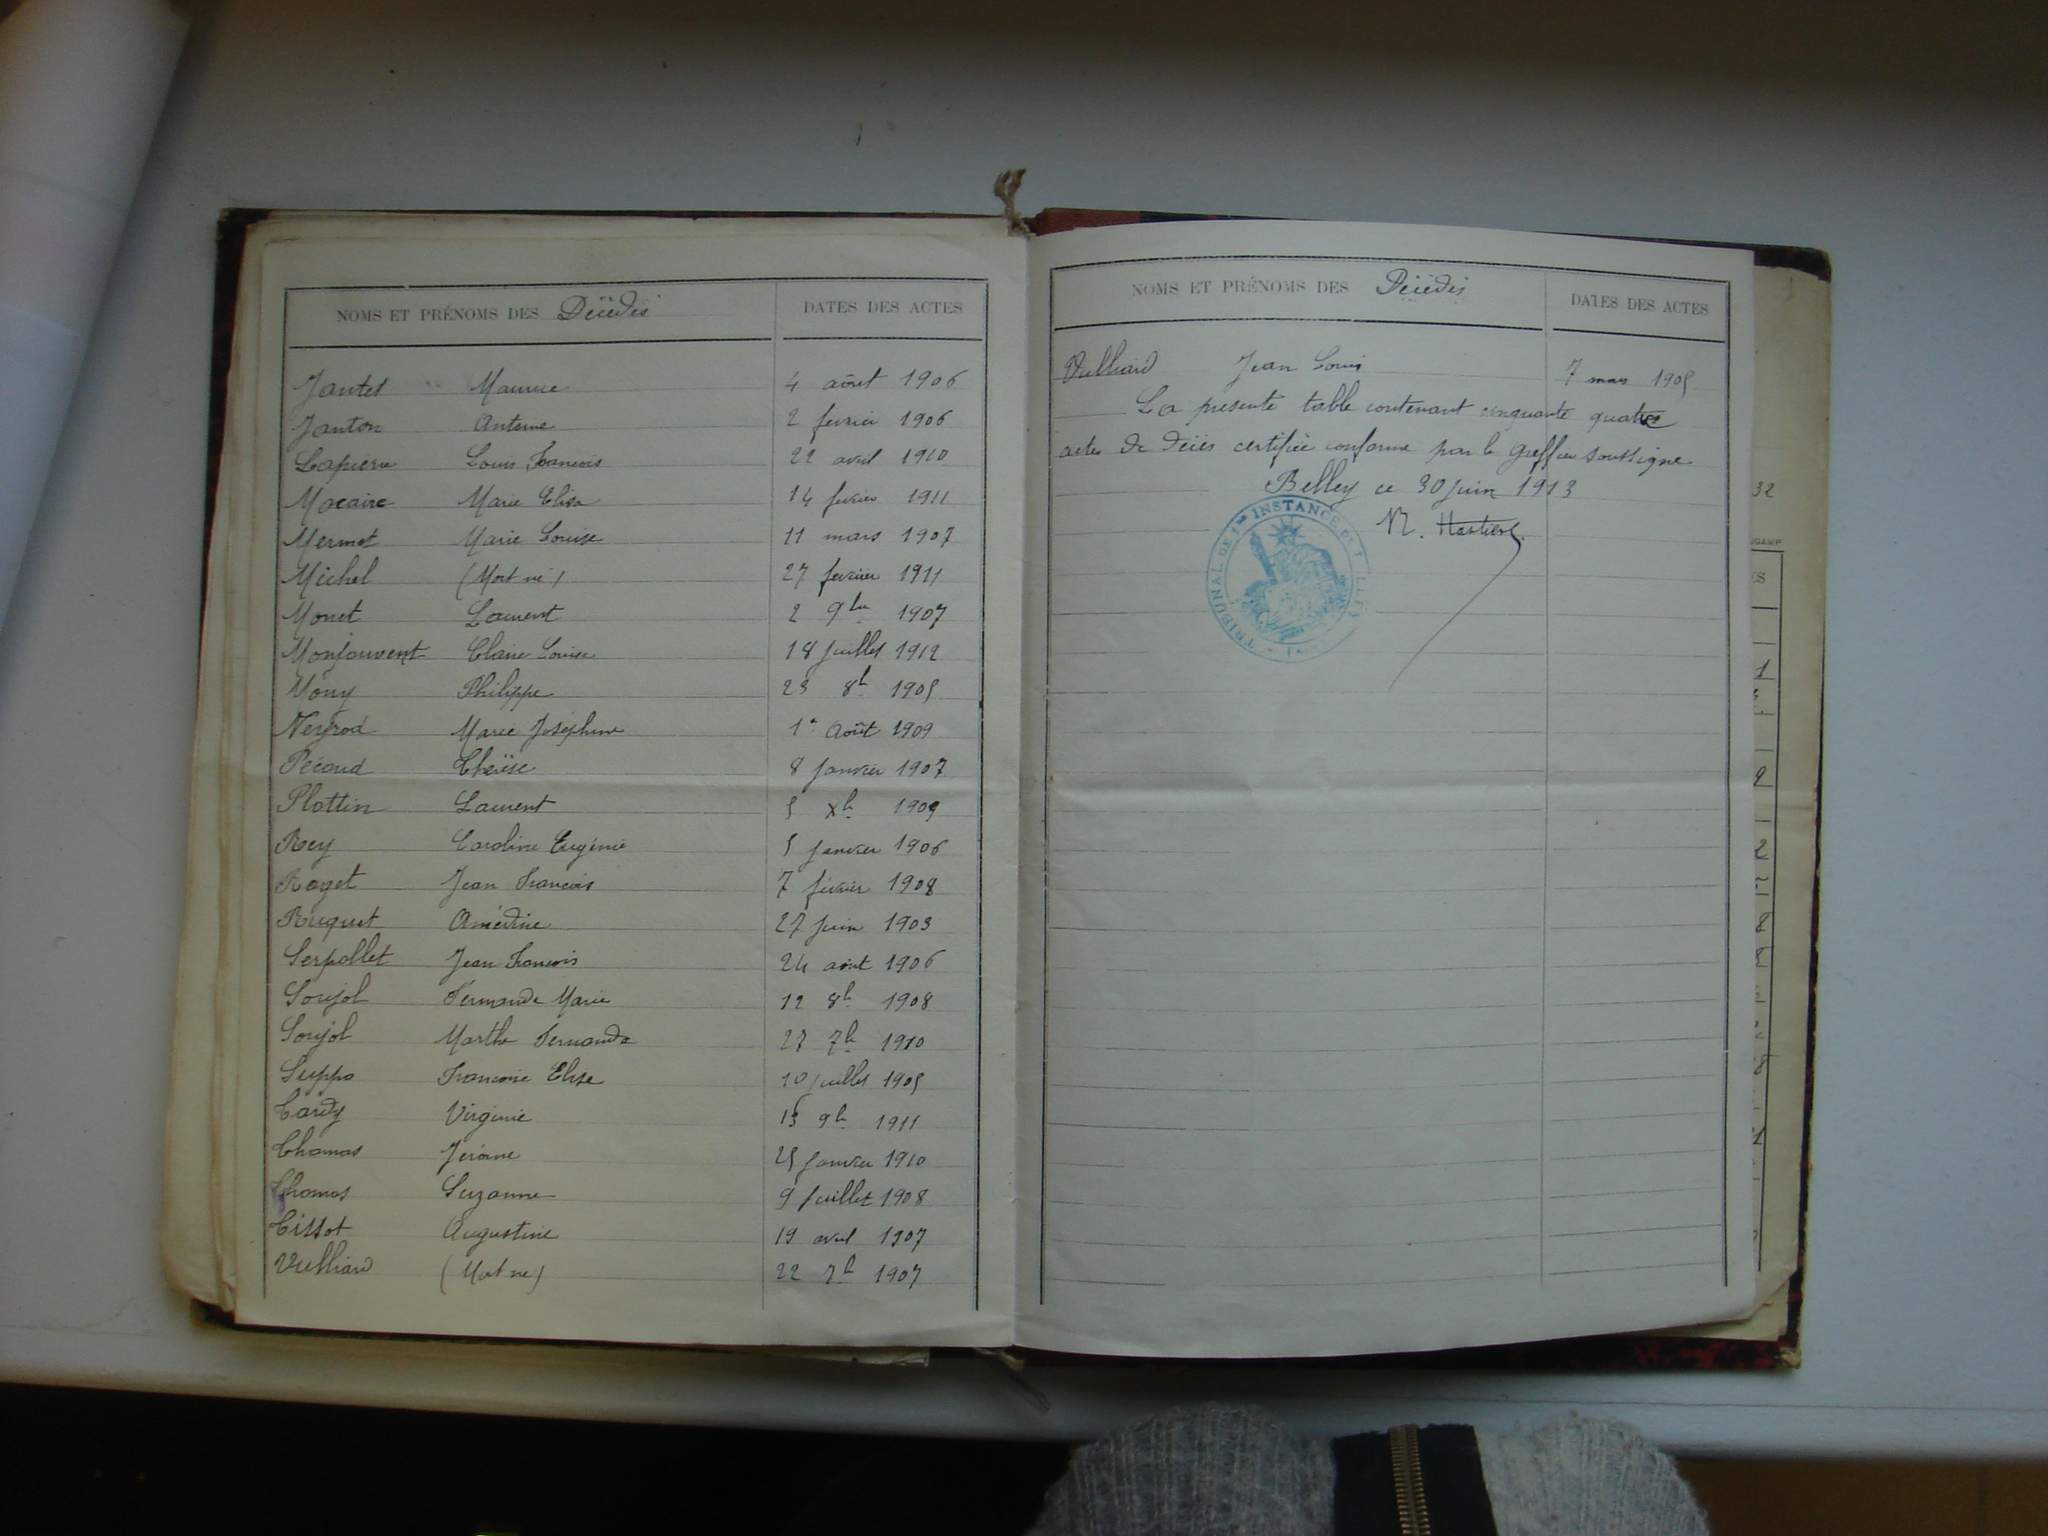 NOMS ET PRÉNOMS DES Décédés DATES DES ACTES
Jantet Maurice 4 août 1906
Janton Antoine 2 fevrier 1906
Lapierre Louis Francois 22 avril 1910
Macaire Marie Elisa 14 fevrier 1911
Mermet Marie Louise 11 mars 1907
Michel (Mort né) 27 fevrier 1911
Monet Laurent 2 9bre 1907
Monjouvent Claire Louise 18 juillet 1912
Mony Philippe 23 8b 1905
Neyrod Marie Joséphine 1er Août 1909
Pécoud Thérèse 8 janvier 1907
Plottin Laurent 5 Xb 1909
Rey Caroline Eugénie 5 janvier 1906
Roget Jean Francois 7 février 1908
Ruquet Amédine 27 juin 1903
Serpollet Jean Francois 24 août 1906
Soujol Fernande Marie 12 8b 1908
Soujol Marthe Fernanda 27 7b 1910
Suppo Francoise Elise 10 juillet 1905
Tardy Virginie 15 9b 1911
Thomas Jérôme 25 janvier 1910
Thomas Suzanne 9 juillet 1908
Tissot Augustine 19 avril 1907
Vulliard (Mort né) 22 7b 1907
NOMS ET PRÉNOMS DES Décédés DATES DES ACTES
Vulliard Jean Louis 7 mars 1905
La présente table contenant cinquante quatre
actes de décès certifiée conforme par le greffier soussigné
Belley ce 30 juin 1913
TRIBUNAL DE 1ère INSTANCE DE
32